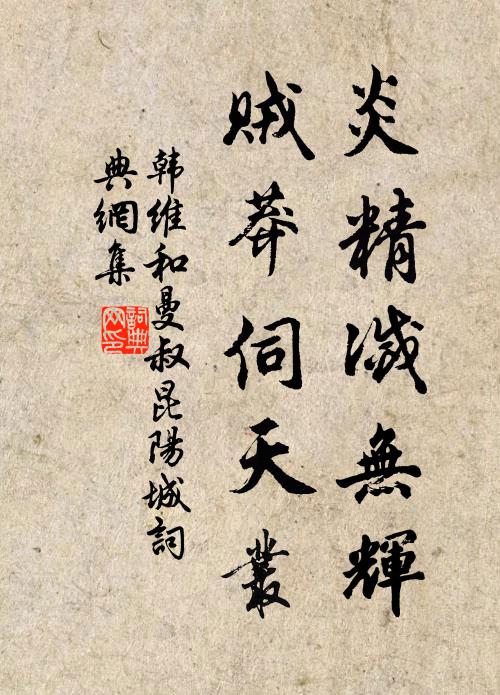 炎精滅無輝
賊莽伺天叢
韩维和曼叔昆陽城詞
典網集
詞典
网印